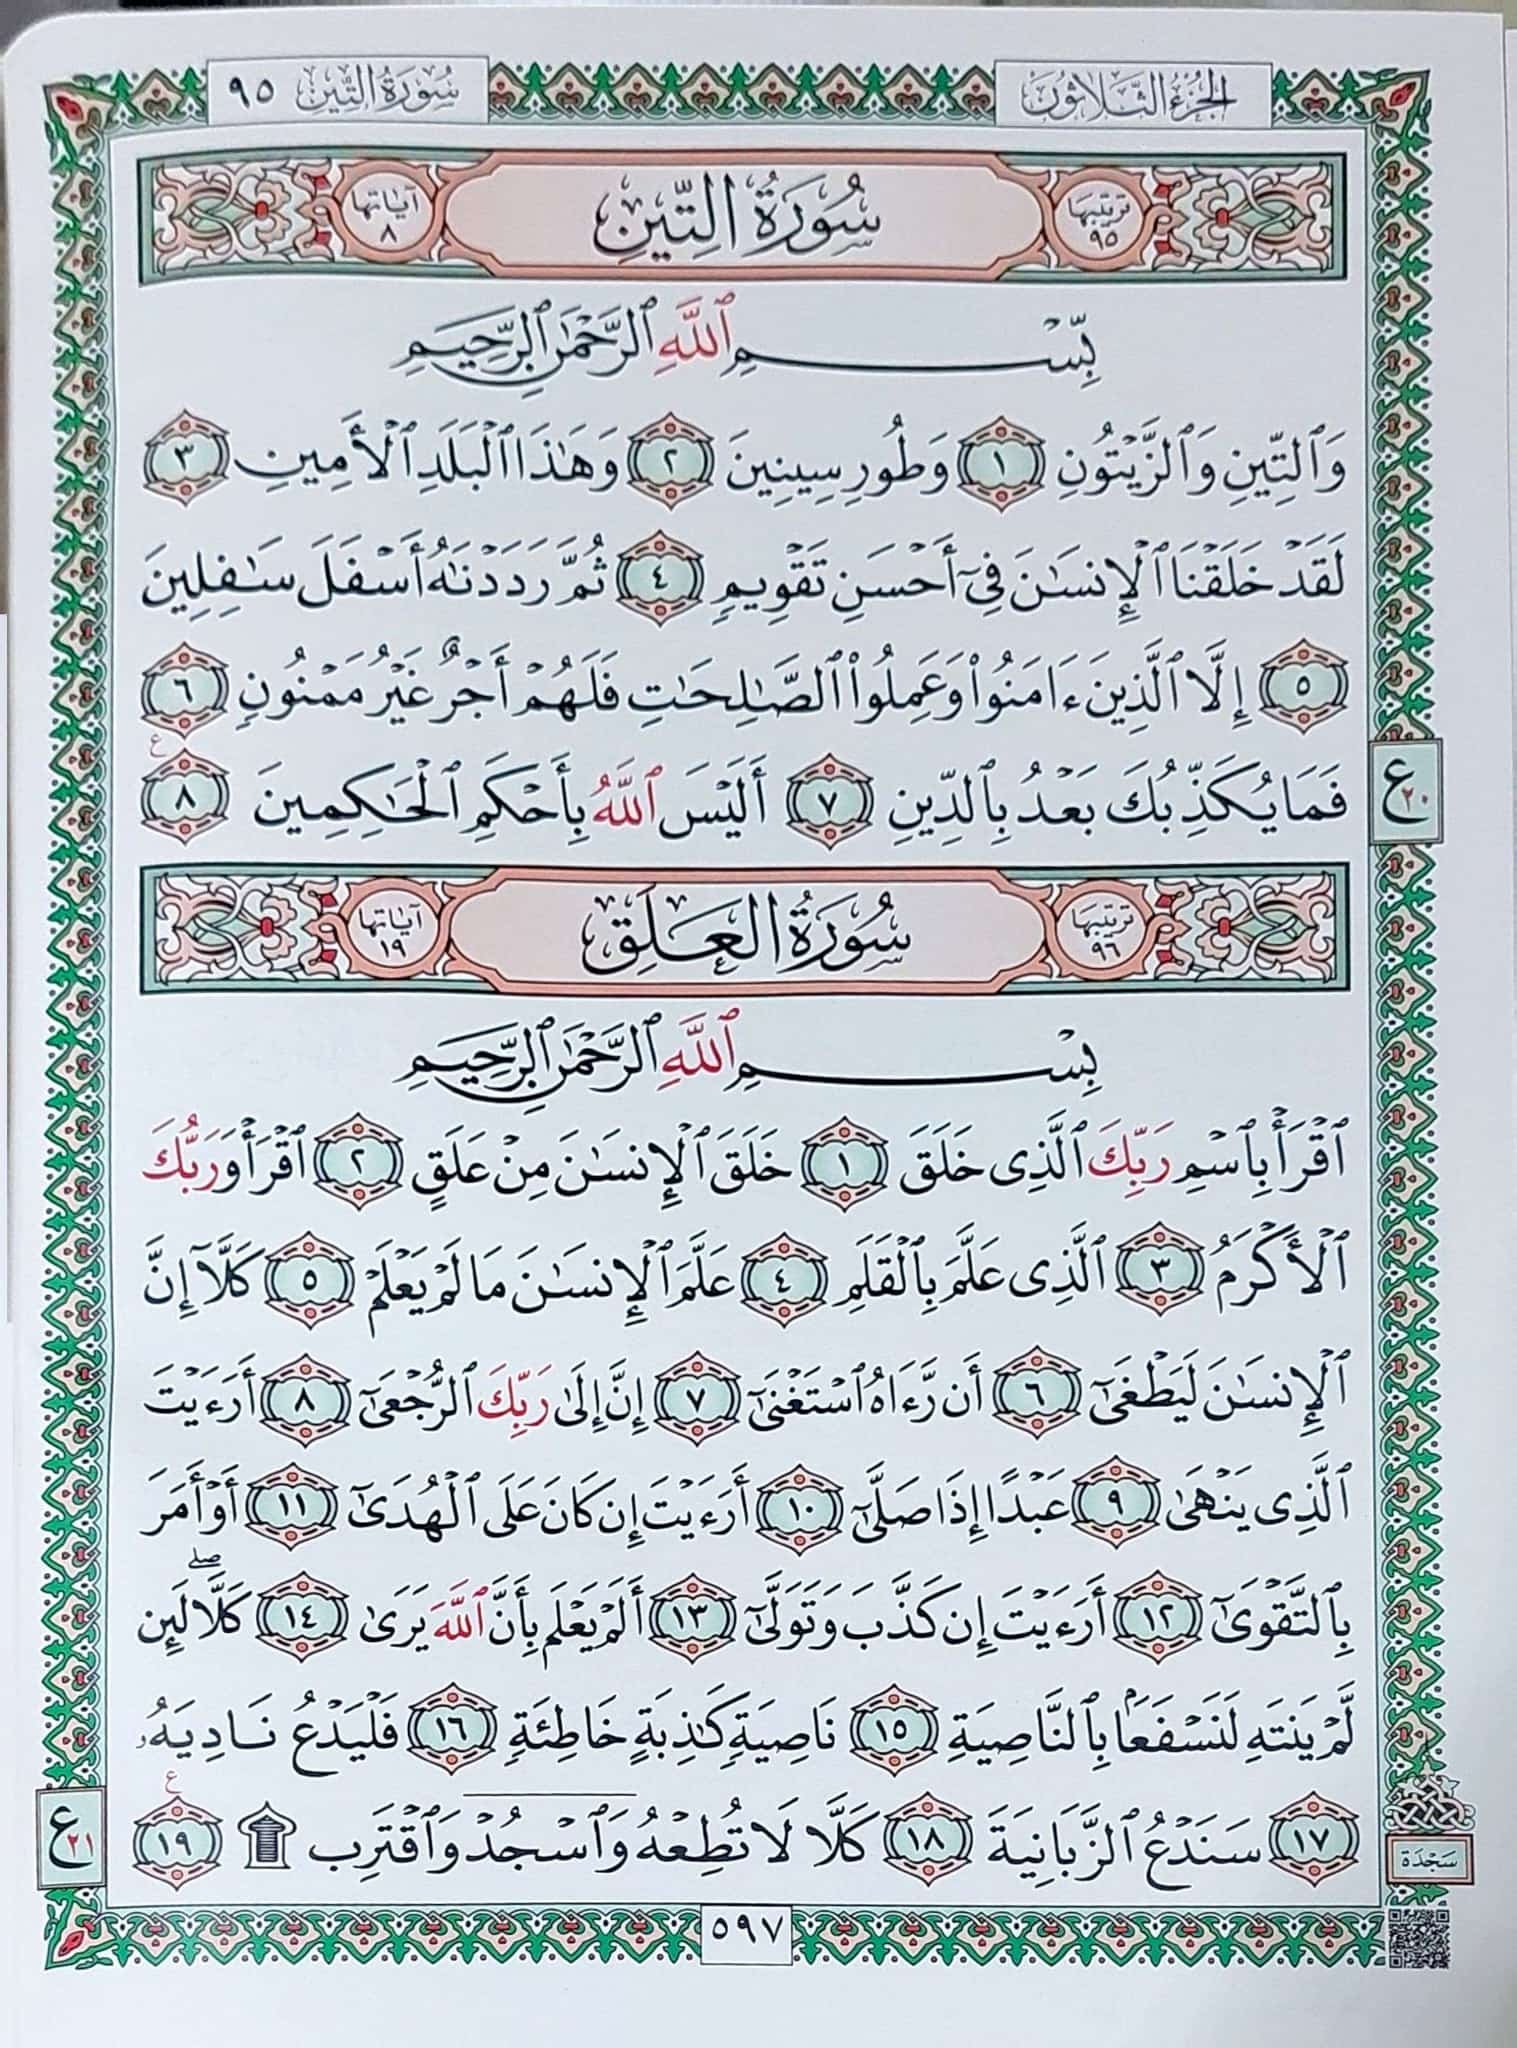 الجزء الثلاثون
سورة التين ٩٥
ترتيبها ٩٥
سورة التين
آياتها ٨
بِّسۡمِ ٱللَّهِ ٱلرَّحۡمَٰنِ ٱلرَّحِيمِ
وَٱلتِّينِ وَٱلزَّيۡتُونِ ١ وَطُورِ سِينِينَ ٢ وَهَٰذَا ٱلۡبَلَدِ ٱلۡأَمِينِ ٣
لَقَدۡ خَلَقۡنَا ٱلۡإِنسَٰنَ فِيٓ أَحۡسَنِ تَقۡوِيمٖ ٤ ثُمَّ رَدَدۡنَٰهُ أَسۡفَلَ سَٰفِلِينَ
٥ إِلَّا ٱلَّذِينَ ءَامَنُواْ وَعَمِلُواْ ٱلصَّٰلِحَٰتِ فَلَهُمۡ أَجۡرٌ غَيۡرُ مَمۡنُونٖ ٦
ع
فَمَا يُكَذِّبُكَ بَعۡدُ بِٱلدِّينِ ٧ أَلَيۡسَ ٱللَّهُ بِأَحۡكَمِ ٱلۡحَٰكِمِينَ ٨
ع ٢٠
ترتيبها ٩٦
سورة العلق
آياتها ١٩
بِسۡمِ ٱللَّهِ ٱلرَّحۡمَٰنِ ٱلرَّحِيمِ
ٱقۡرَأۡ بِٱسۡمِ رَبِّكَ ٱلَّذِي خَلَقَ ١ خَلَقَ ٱلۡإِنسَٰنَ مِنۡ عَلَقٍ ٢ ٱقۡرَأۡ وَرَبُّكَ
ٱلۡأَكۡرَمُ ٣ ٱلَّذِي عَلَّمَ بِٱلۡقَلَمِ ٤ عَلَّمَ ٱلۡإِنسَٰنَ مَا لَمۡ يَعۡلَمۡ ٥ كَلَّآ إِنَّ
ٱلۡإِنسَٰنَ لَيَطۡغَىٰٓ ٦ أَن رَّءَاهُ ٱسۡتَغۡنَىٰٓ ٧ إِنَّ إِلَىٰ رَبِّكَ ٱلرُّجۡعَىٰٓ ٨ أَرَءَيۡتَ
ٱلَّذِي يَنۡهَىٰ ٩ عَبۡدًا إِذَا صَلَّىٰٓ ١٠ أَرَءَيۡتَ إِن كَانَ عَلَى ٱلۡهُدَىٰٓ ١١ أَوۡ أَمَرَ
بِٱلتَّقۡوَىٰٓ ١٢ أَرَءَيۡتَ إِن كَذَّبَ وَتَوَلَّىٰٓ ١٣ أَلَمۡ يَعۡلَم بِأَنَّ ٱللَّهَ يَرَىٰ ١٤ كَلَّاۖ لَئِن
لَّمۡ يَنتَهِ لَنَسۡفَعَۢا بِٱلنَّاصِيَةِ ١٥ نَاصِيَةٖ كَٰذِبَةٍ خَاطِئَةٖ ١٦ فَلۡيَدۡعُ نَادِيَهُۥ
ع
١٧ سَنَدۡعُ ٱلزَّبَانِيَةَ ١٨ كَلَّا لَا تُطِعۡهُ وَٱسۡجُدۡۤ وَٱقۡتَرِب ۩ ١٩
سجدة
ع ٢١
٥٩٧